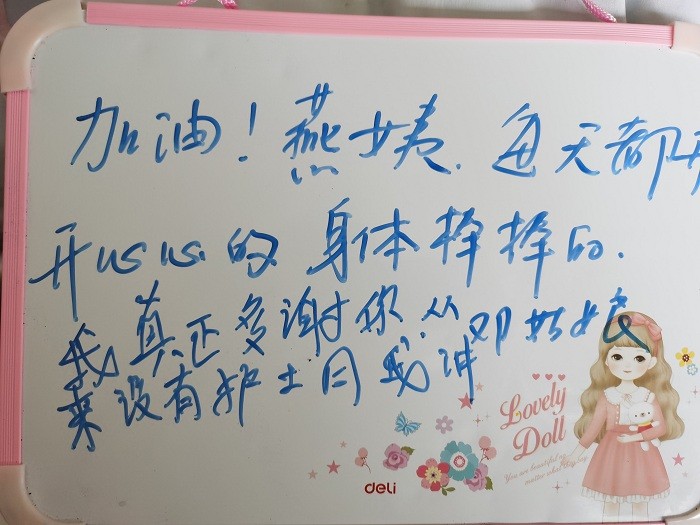 加油！燕姨.每天都开
开心心的 身体棒棒的.
我真正多谢你.从邓姑娘
来没有护士同我讲
Lovely
Doll
You are beautiful no
matter what they say
deli